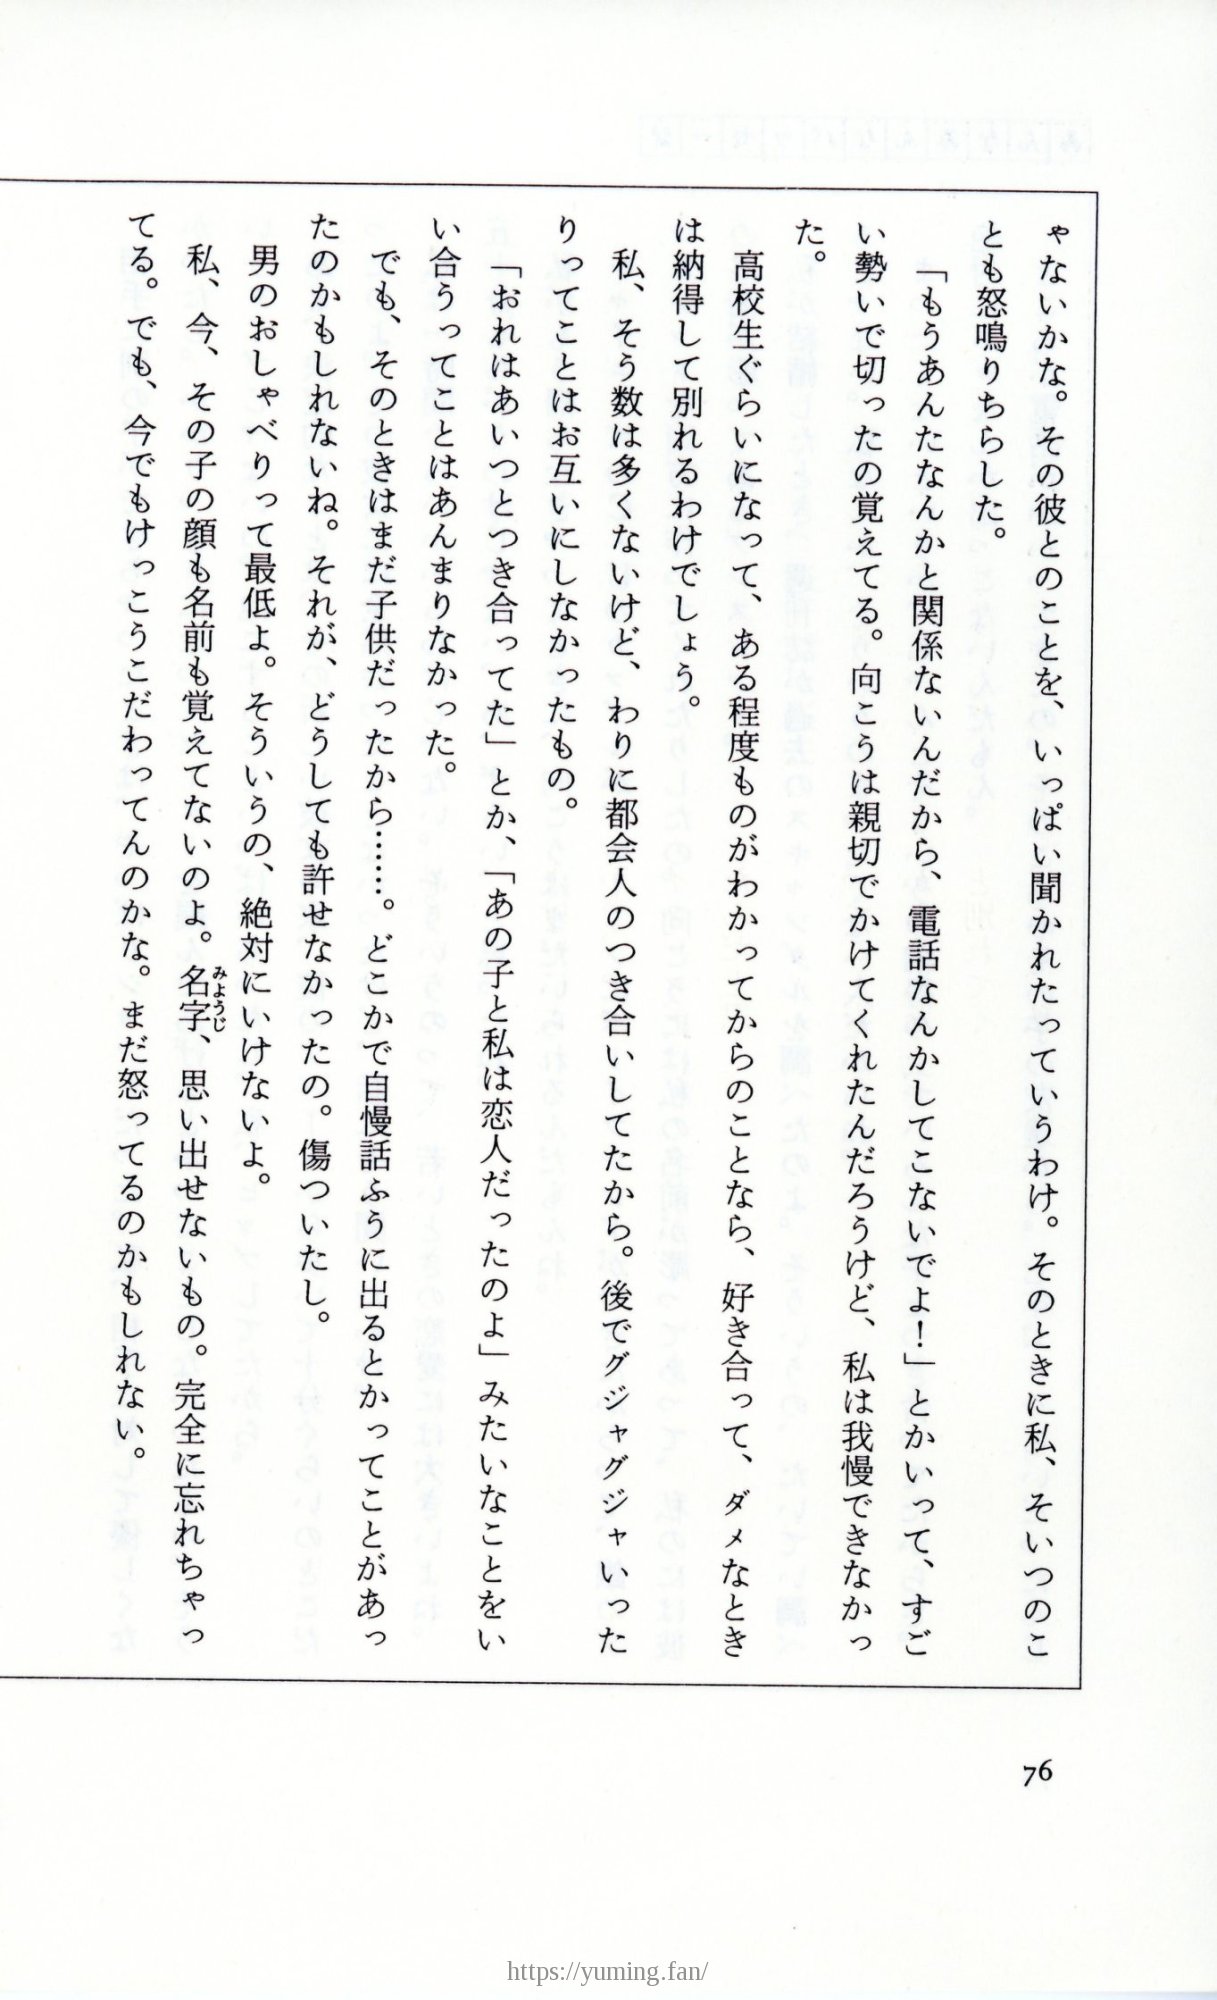 ゃないかな。その彼とのことを、いっぱい聞かれたっていうわけ。そのときに私、そいつのこ
とも怒鳴りちらした。
「もうあんたなんかと関係ないんだから、電話なんかしてこないでよ！」とかいって、すご
い勢いで切ったの覚えてる。向こうは親切でかけてくれたんだろうけど、私は我慢できなかっ
た。
高校生ぐらいになって、ある程度ものがわかってからのことなら、好き合って、ダメなとき
は納得して別れるわけでしょう。
私、そう数は多くないけど、わりに都会人のつき合いしてたから。後でグジャグジャいった
りってことはお互いにしなかったもの。
「おれはあいつとつき合ってた」とか、「あの子と私は恋人だったのよ」みたいなことをい
い合うってことはあんまりなかった。
でも、そのときはまだ子供だったから……。どこかで自慢話ふうに出るとかってことがあっ
たのかもしれないね。それが、どうしても許せなかったの。傷ついたし。
男のおしゃべりって最低よ。そういうの、絶対にいけないよ。
私、今、その子の顔も名前も覚えてないのよ。名字、思い出せないもの。完全に忘れちゃっ
みようじ
てる。でも、今でもけっこうこだわってんのかな。まだ怒ってるのかもしれない。
76
https://yuming.fan/